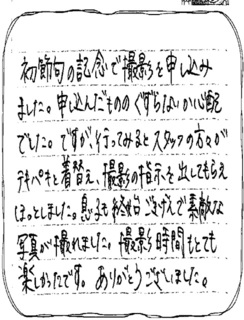 初節句の記念で撮影を申し込み
ました。申し込んだもののぐずらないか心配
でした。ですが、行ってみるとスタッフの方々が
テキパキと着替え、撮影の指示を出してもらえ
ほっとしました。息子も終始ごきげんで素敵な
写真が撮れました。撮影時間もとても
楽しかったです。ありがとうございました。